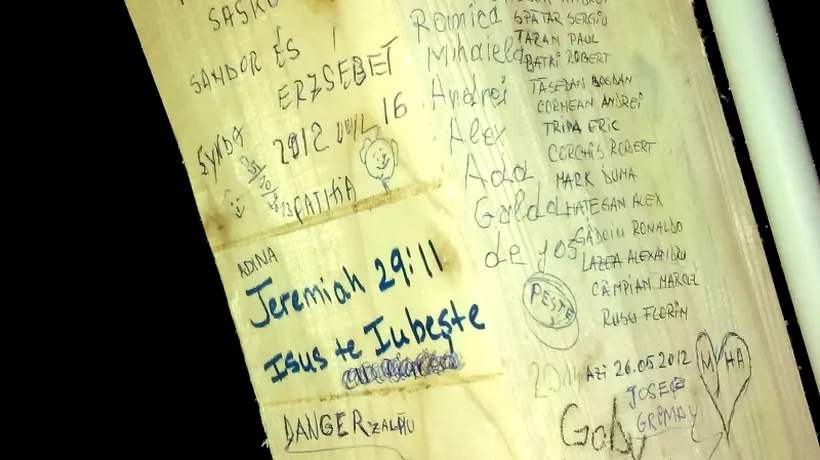 SASKO
SANDOR ÉS
ERZSEBET
2012 16
FATIMA
ADINA
Jeremiah 29:11
Isus te Iubește
DANGER ZALĂU
Romica
Mihaiela
Andrei
Alex
Ada
Galda
de jos
PESTE
SPĂTAR SERGIU
TĂRAN PAUL
BATRI ROBERT
BOGDAN
CORMEAN ANDREI
TRIPA ERIC
CORCHIS ROBERT
MARK DUMA
HATEGAN ALEX
RONALDO
LAZEA ALEXANDRU
CÂMPIAN MARCEL
RUSU FLORIN
AZI 26.05.2012
M HA
JOSEP
Gaby